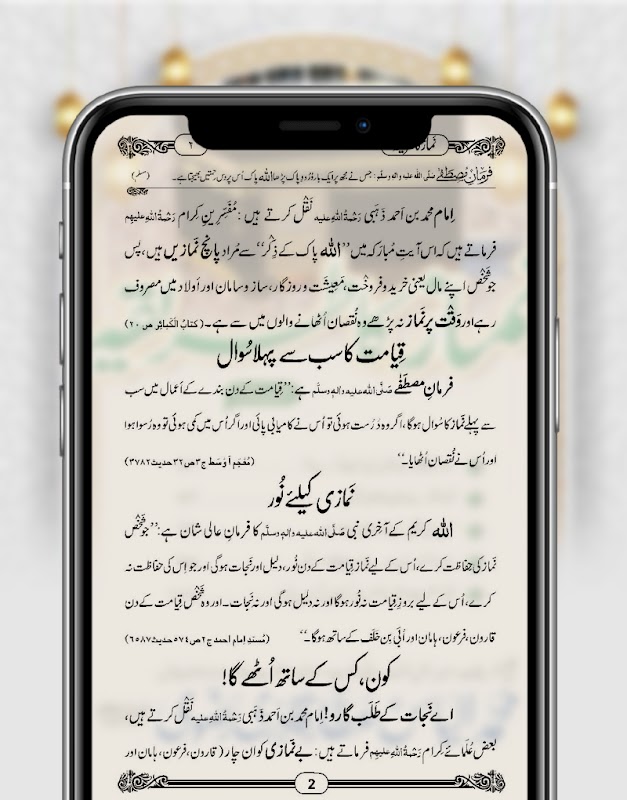 ۲
فرمانِ مصطفےٰ صلی اللہ علیہ واٰلہٖ وسلم: جس نے مجھ پر ایک بار دُرُود پاک پڑھا اللہ پاک اُس پر دس رحمتیں بھیجتا ہے۔ (مسلم)
اِمام محمد بن اَحمد ذَہَبی رَحْمَۃُ اللہِ علیہ نَقْل کرتے ہیں: مُفَسِّرینِ کِرام رَحْمَۃُ اللہِ علیہم
فرماتے ہیں کہ اس آیتِ مُبارَکہ میں ’’اللہ پاک کے ذِکْر‘‘ سے مُراد پانچ نمازیں ہیں، پس
جو شَخْص اپنے مال یعنی خرید و فروخْت، مَعِیْشَت و روزگار، ساز و سامان اور اَولاد میں مصروف
رہے اور وَقْت پر نَماز نہ پڑھے وہ نُقصان اُٹھانے والوں میں سے ہے۔ (کتابُ الْکبائِر ص ۲۰)
قِیامت کا سب سے پہلا سُوال
فرمانِ مصطفٰے صَلَّی اللہ علیہ واٰلہٖ وسلَّم ہے: ’’قِیامت کے دن بندے کے اَعمال میں سب
سے پہلے نَماز کا سُوال ہوگا، اگر وہ دُرُست ہوئی تو اُس نے کامیابی پائی اور اگر اُس میں کمی ہوئی تو وہ رُسوا ہوا
اور اُس نے نُقصان اُٹھایا۔‘‘ (مُعْجَم اَوْسَط ج۳ ص۳۲ حدیث ۳۷۸۲)
نَمازی کیلئے نُور
اللہ کریم کے آخِری نبی صَلَّی اللہ علیہ واٰلہٖ وسلَّم کا فرمانِ عالی شان ہے: ’’جو شَخْص
نَماز کی حفاظت کرے، اُس کے لیے نَماز قِیامت کے دن نُور، دلیل اور نَجات ہوگی اور جو اِس کی حفاظت نہ
کرے، اُس کے لیے بروزِ قِیامت نہ نُور ہوگا اور نہ دلیل ہوگی اور نہ نَجات۔ اور وہ شَخْص قِیامت کے دن
قارون، فرعون، ہامان اور اُبَی بن خَلَف کے ساتھ ہوگا۔‘‘ (مُسندِ امام احمد ج۲ ص۵۷۴ حدیث ۶۵۸۷)
کون، کس کے ساتھ اُٹھے گا!
اے نَجات کے طَلَب گارو! اِمام محمد بن اَحمد ذَہَبی رَحْمَۃُ اللہِ علیہ نَقْل کرتے ہیں،
بعض عُلَمائے کِرام رَحْمَۃُ اللہِ علیہم فرماتے ہیں: بے نَمازی کو ان چار (قارون، فرعون، ہامان اور
2